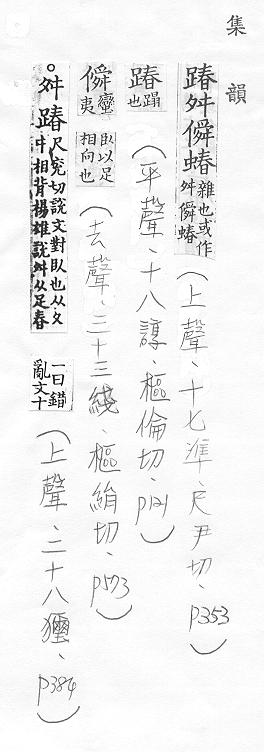 集韻
踳舛僢蝽雜也或作舛僢蝽(上聲、十七準、尺尹切、p353)
踳蹋也(平聲、十八諄、樞倫切、p121)
僢蠻夷臥以足相向也(去聲、三十三綫、樞絹切、p573)
舛踳尺兖切說文對臥也从夊㐄相背揚雄說舛从足春一曰錯亂文十(上聲、二十八獮、p384)